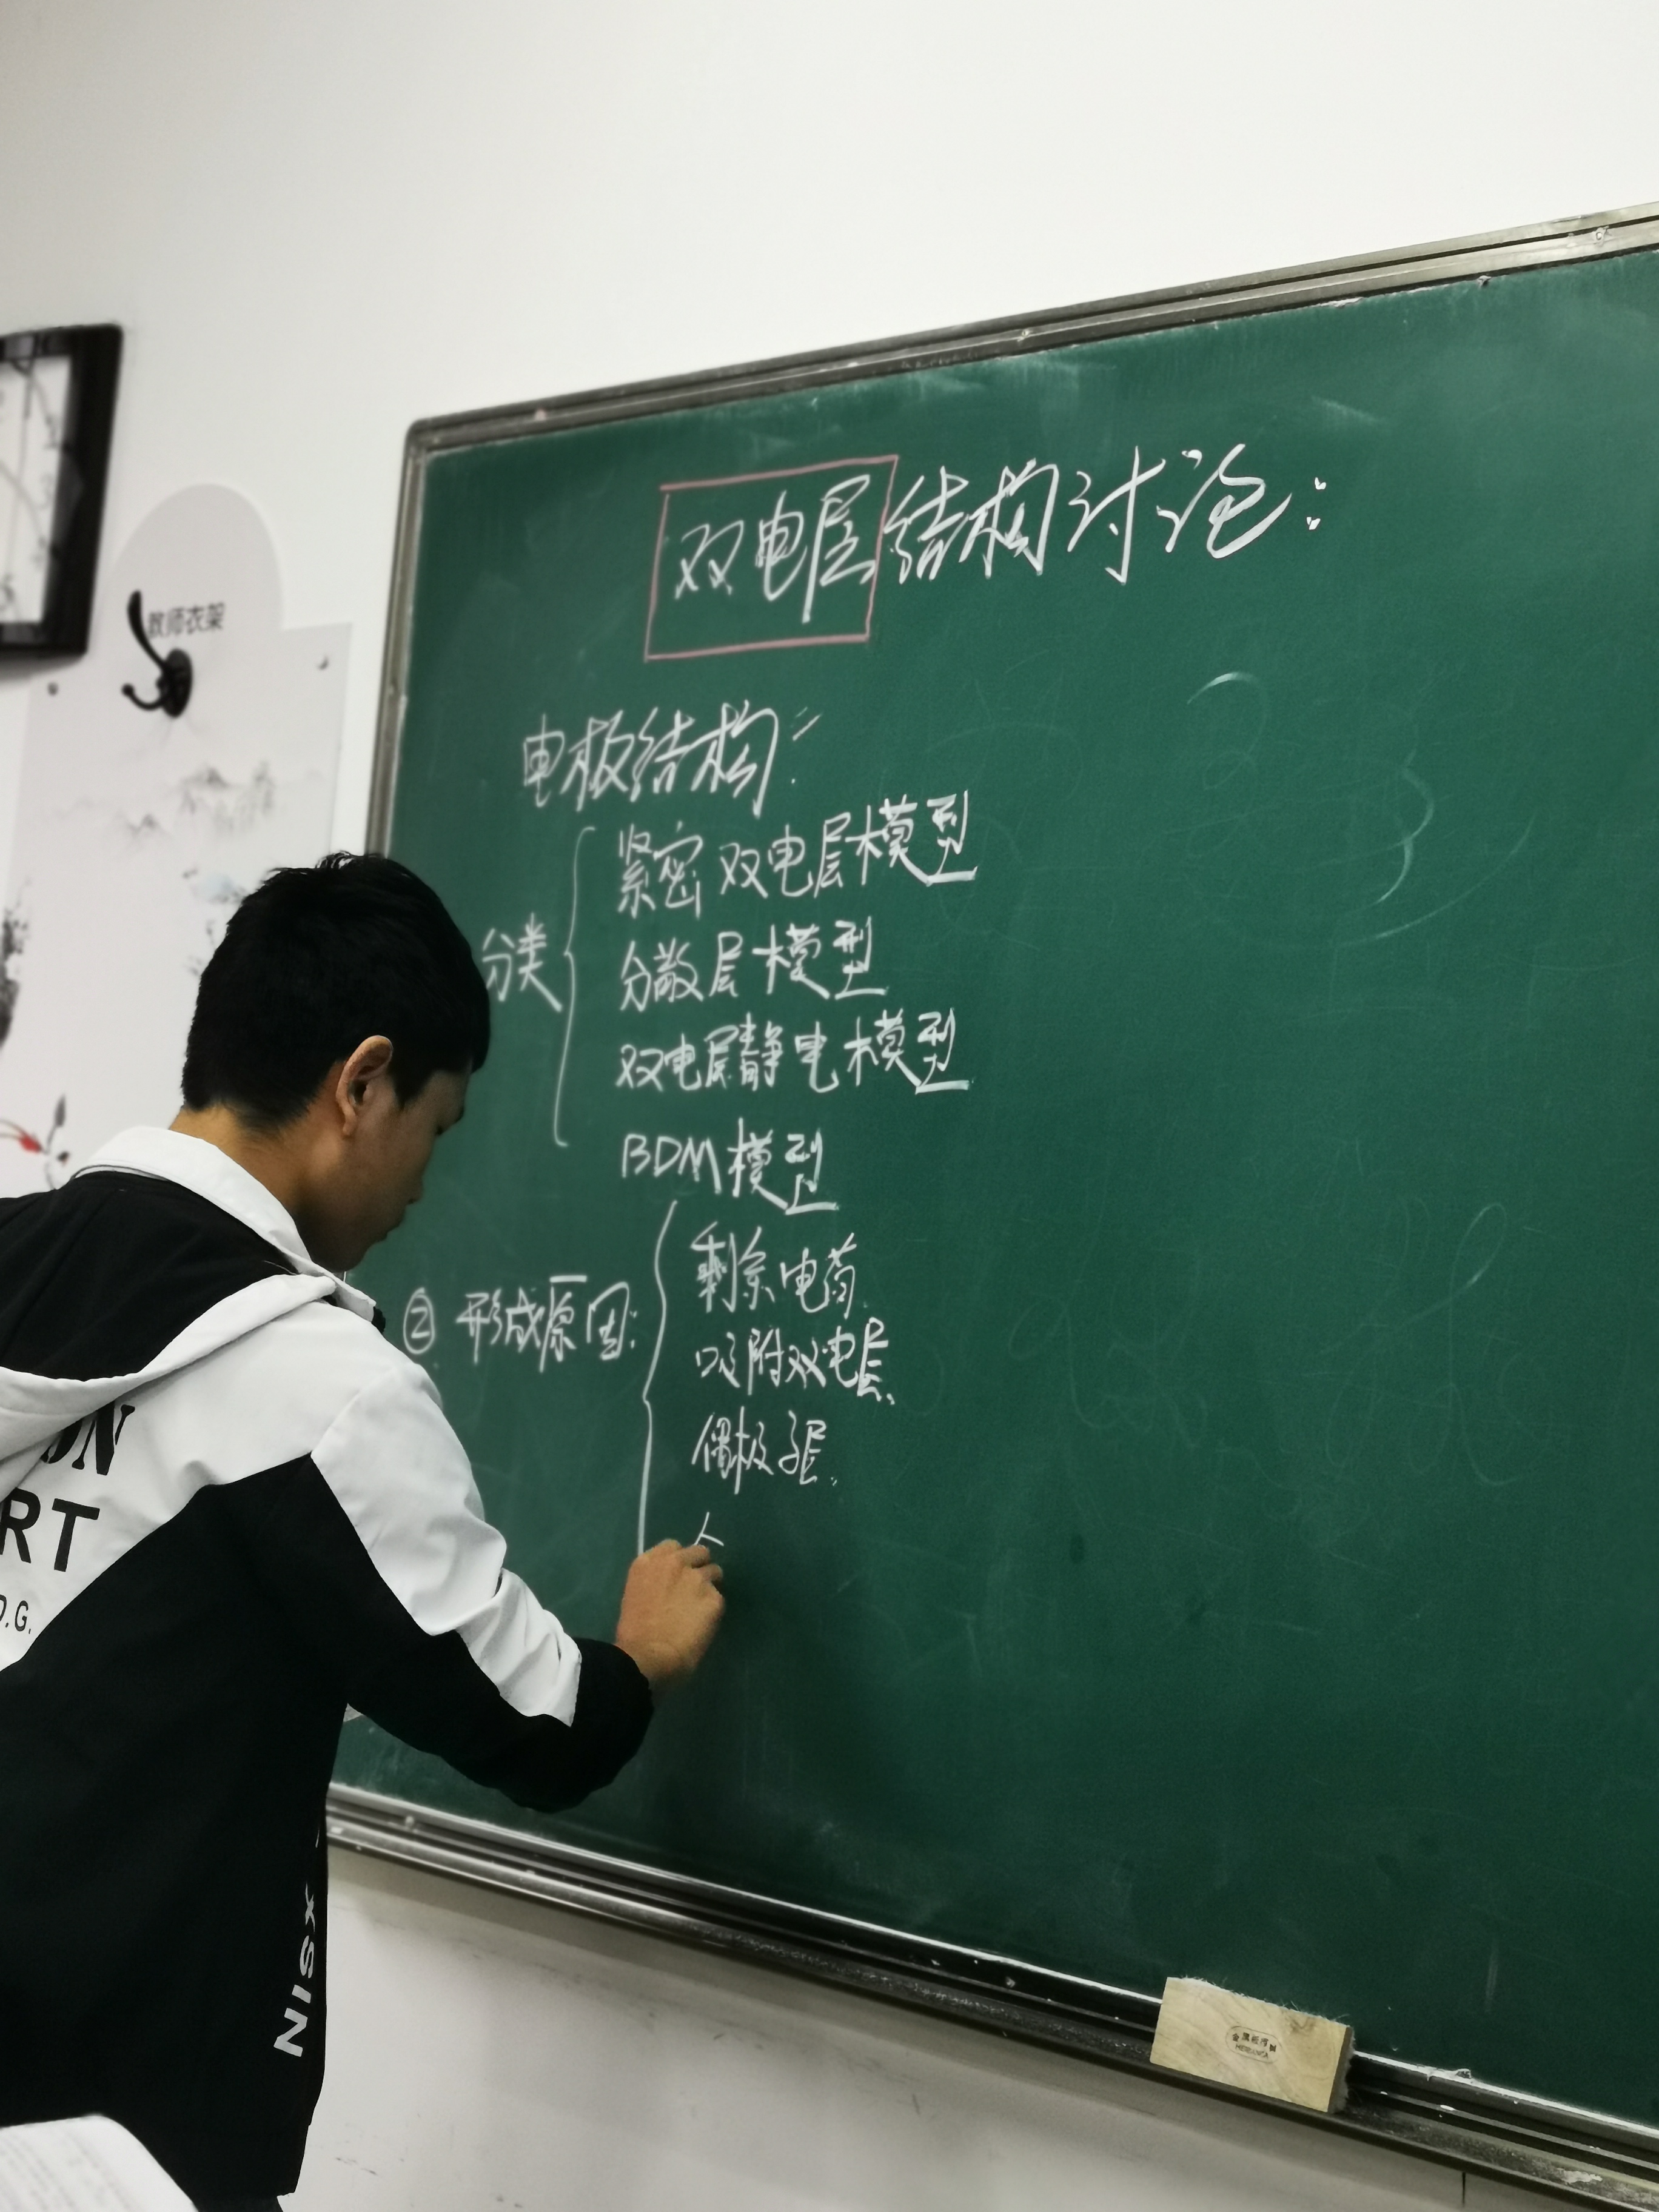 双电层结构讨论:
电板结构:
分类
紧密双电层模型
分散层模型
双电层静电模型
BDM模型
② 形成原因:
剩余电荷.
吸附双电层.
偶极子层.
教师衣架
RT
D.G.
NISX